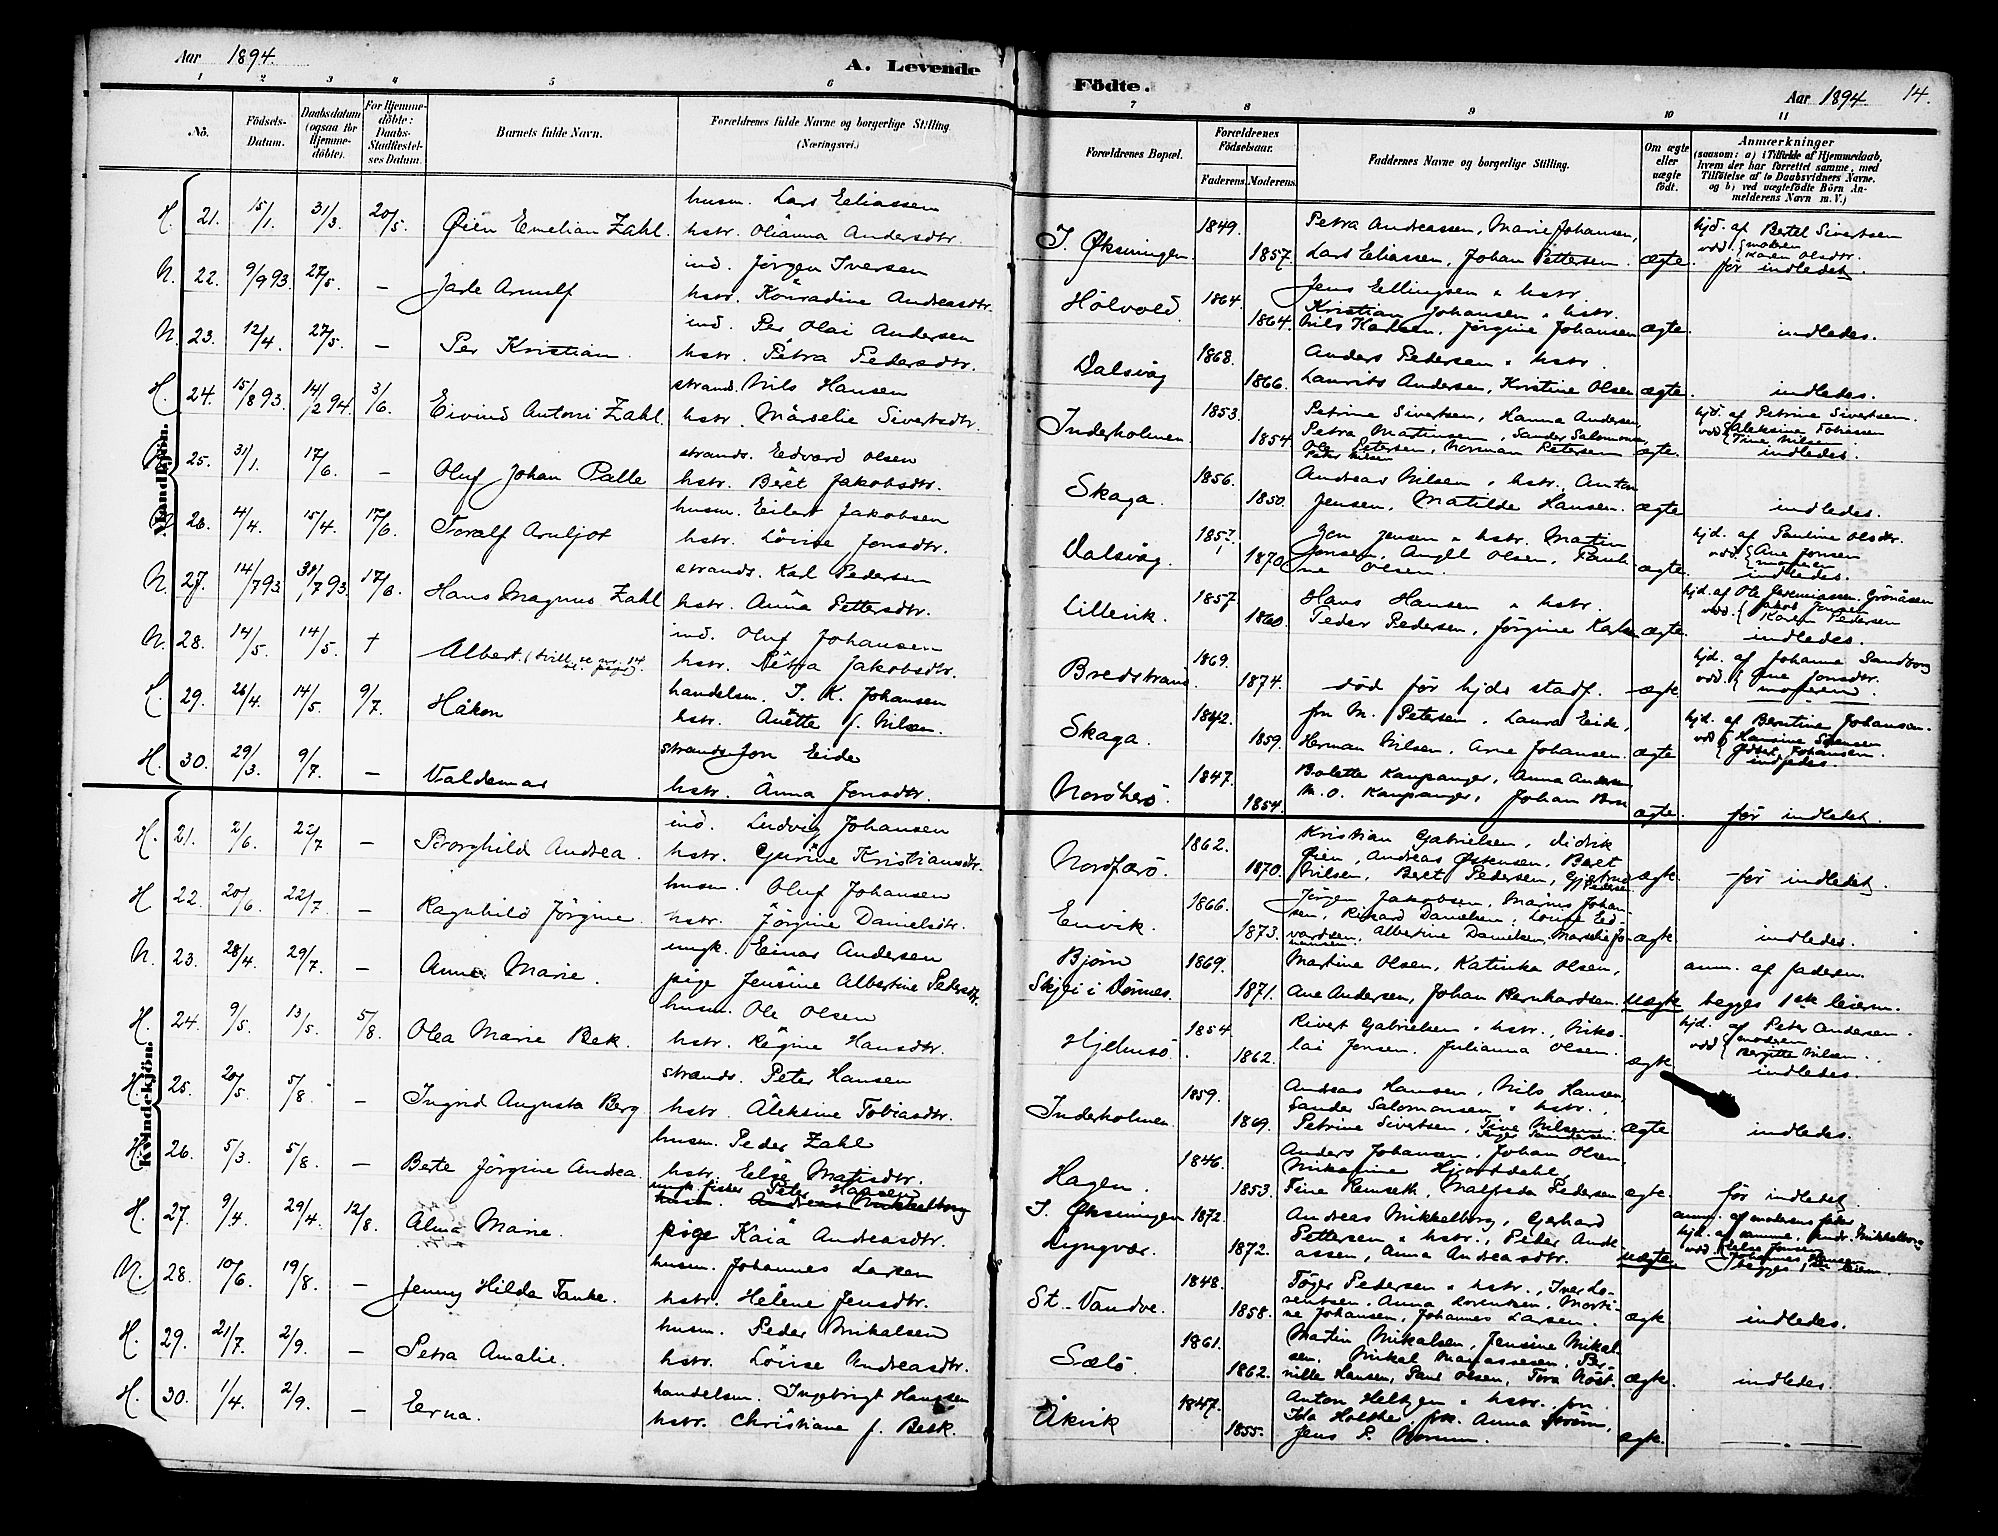 Aar 1894.
A. Levende
Födte.
Aar 1894
14.
1 2 3 4 5 6 7 8 9 10 11
No.
Födsels-Datum.
Daabsdatum (ogsaa for Hjemme-döbte).
For Hjemme-döbte: Daabs-Stadfæstel-ses Datum.
Barnets fulde Navn.
Forældrenes fulde Navne og borgerlige Stilling (Næringsvei.)
Forældrenes Bopæl.
Forældrenes Födselsaar.
Faderens. Moderens.
Faddernes Navne og borgerlige Stilling.
Om ægte eller uægte födt.
Anmærkninger
(saasom: a) i Tilfælde af Hjemmedaab,
hvem der har forrettet samme, med
Tilföielse af to Daabsvidners Navne.
og b) ved uægtefödte Börn An-
melderens Navn m.V.)
Mandkjön.
H. 21. 15/1. 31/3. 20/5. Øien Emelian Zahl. husm. Lars Eliassen
hstr. Olianna Andersdtr.
I. Øksningen. 1849. 1857. Petra Andreassen, Marie Johansen,
Lars Eliassen, Johan Pettersen. ægte. hjd. af Bertel Sivertsen
vdd. { moderen
Karen Olsdtr.
før indledet.
N. 22. 9/9 93. 27/5. — Jarle Arnulf ind. Jörgen Iversen
hstr. Konradine Andreasdtr.
Hölvold. 1864. 1864. Jens Ellingsen " hstr.
Kristian Johansen " hstr.
Nils Karlsen, Jörgine Johansen ægte. indledes.
N. 23. 12/4. 27/5. — Per Kristian. ind. Per Olai Andersen
hstr. Petra Pedersdtr.
Dalsvåg 1868. 1866. Anders Pedersen " hstr.
Laurits Andersen, Kristine Olsen ægte. indledes.
H. 24. 15/8 93. 14/2 94. 3/6. Eivind Antoni Zahl. strands. Nils Hansen
hstr. Marselie Sivertsdtr.
Inderholmen. 1853. 1854. Petrine Sivertsen, Hanna Andersen
Petra Martinsen, Sander Salomonsen,
Ole Petersen, Norman Petersen
Peter Nilsen ægte. hjd. af Petrine Sivertsen.
vdd. { Aleksine Tobiassen
Tine Nilsen
indledes.
25. 31/1. 17/6. — Oluf Johan Palle strands. Edvard Olsen
hstr. Beret Jakobsdtr.
Skaga. 1856. 1850. Andreas Nilsen " hstr. Anton
Jensen, Matilde Hansen. ægte indledes.
26. 4/4. 15/4. 17/6. Toralf Arnljot husm. Eilert Jakobsen
hstr. Lovise Jonsdtr.
Dalsvåg. 1870. Jon Jensen " hstr. Martin
Jensen, Angel Olsen, Pauli-
ne Olsen. ægte. hjd. af Pauline Olsdtr.
vdd. { Ane Jonsen
moderen
indledes.
N. 27. 14/7 93. 30/7 93. 17/6. Hans Magnus Zahl strands. Karl Pedersen
hstr. Anna Pettersdtr.
Lillevik. 1857. 1860. Hans Hansen " hstr.
Peder Pedersen, Jörgine Karlsen ægte. hjd. af Ole Jeremiassen. Grönåsen
vdd. { Jakob Jensen
Karen Pedersen
indledes.
N. 28. 14/5. 14/5. † Albert. (tvill. se nr. 14 pige) ind. Oluf Johansen
hstr. Petra Jakobsdtr.
Bredstrand 1869. 1874. död før hjds stadf. ægte hjd. af Johanna Sandberg
vdd. { Ane Jonsdtr.
moderen.
H. 29. 26/4. 14/5. 9/7. Håkon handelsm. I. K. Johansen
hstr. Anette f. Nilsen.
Skaga. 1842. 1859. fru M. Petersen, Laura Eide,
Herman Nilsen, Arne Johansen. ægte hjd. af Berntine Johansen.
vdd. { Hansine Sörensen
Johansen.
indledes.
H. 30. 29/3. 9/7. — Valdemar strands Jon Eide
hstr. Anna Jensdtr.
Nordherö. 1847. 1854. Bolette Kaupanger, Anna Andersen
M. O. Kaupanger, Johan Berg ægte. før indledet.
Kvindekjön.
H. 21. 2/6. 22/7 — Borghild Andrea. ind. Ludvig Johansen
hstr. Gurine Kristiansdtr.
Nordfarö. 1862. 1870. Kristian Gabrielsen, Didrik
Øien, Andreas Øskensen, Beret
Nilsen, Beret Pedersen, Gjertrud
Pedersen ægte. før indledet.
H 22. 20/6. 22/7. — Ragnhild Jörgine. husm. Oluf Johansen
hstr. Jörgine Danielsdtr.
Envik. 1866. 1873. Jörgen Jakobsen, Marius Johan-
sen, Rikard Danielsen, Lovise Ed-
vardsen, Albertine Danielsen, Marselie Jo-
hansen ægte indledes.
N. 23. 28/4. 29/7. — Anna Marie. ungk. Einar Andersen
pige Jensine Albertine Pedersdtr.
Björn
Skjei i Dönnes. 1869. 1871. Martine Olsen, Katinka Olsen,
Ane Andersen, Johan Bernhardsen. uægte anm. af faderen.
begges 1ste leierm.
H. 24. 9/5. 13/5. 5/8. Olea Marie Bek. husm. Ole Olsen
hstr. Regine Hansdtr.
Hjelmsö. 1854. 1862. Sivert Gabrielsen " hstr., Niko-
lai Jensen, Julianna Olsen. ægte hjd. af Peter Andersen.
vdd. { moderen
Bergitte Nilsen.
indledes.
H. 25. 20/5. 5/8. — Ingrid Augusta Berg strands. Peter Hansen
hstr. Aleksine Tobiasdtr.
Inderholmen 1859. 1869. Andreas Hansen, Nils Hansen,
Sander Salomonsen " hstr.,
Petrine Sivertsen, Tine Nilsen. ægte indledes.
H. 26. 5/3. 5/8. — Berte Jörgine Andrea husm. Peder Zahl
hstr. Else Matisdtr.
Hagen. 1846. 1853. Anders Johansen, Johan Olsen,
Nikoline Hjortdahl,
Tine Remseth, Malfrida Pedersen ægte. før indledet.
H. 27. 9/4. 29/4. 12/8. Alma Marie. ungk. fisker Peter Hansen
husm. Andreas Mikkelborg
pige Kaia Andreasdtr.
I. Øksningen
Lyngvær. 1872. 1872. Andreas Mikkelborg, Gerhard
Pettersen " hstr., Peder Andr-
assen, Anna Andreasdtr. uægte. anm. af moderens fader
hjd. af samme, Andr. Mikkelborg
vdd. { Else Jensen
Johannes Hansen
begges 1ste leierm.
N. 28. 10/6. 19/8. — Jenny Hilda Tanke. husm. Johannes Larsen
hstr. Helene Jensdtr.
St. Vandve. 1848. 1858. Töger Pedersen " hstr., Iver Lo-
rentsen, Anna Lorentsen, Marti-
ne Johansen, Johannes Larsen. ægte. indledes.
H. 29. 21/7. 2/9. — Petra Amalie. husm. Peder Mikalsen
hstr. Lovise Andreasdtr.
Sælö 1861. 1862. Martin Mikalsen, Jensine Mikal-
sen, Mikal Manassesen, Per-
nille Hansen, Paul Olsen, Tora Röst. ægte. indledes.
H. 30. 1/4. 2/9. — Erna. handelsm. Ingebrigt Hanssen
hstr. Christiane f. Beck.
Åkvik 1847. 1855. Anton Heltzen " hstr. frk.
Ida Holthe, frk. Anna Ström,
Jens P. Normann. ægte.